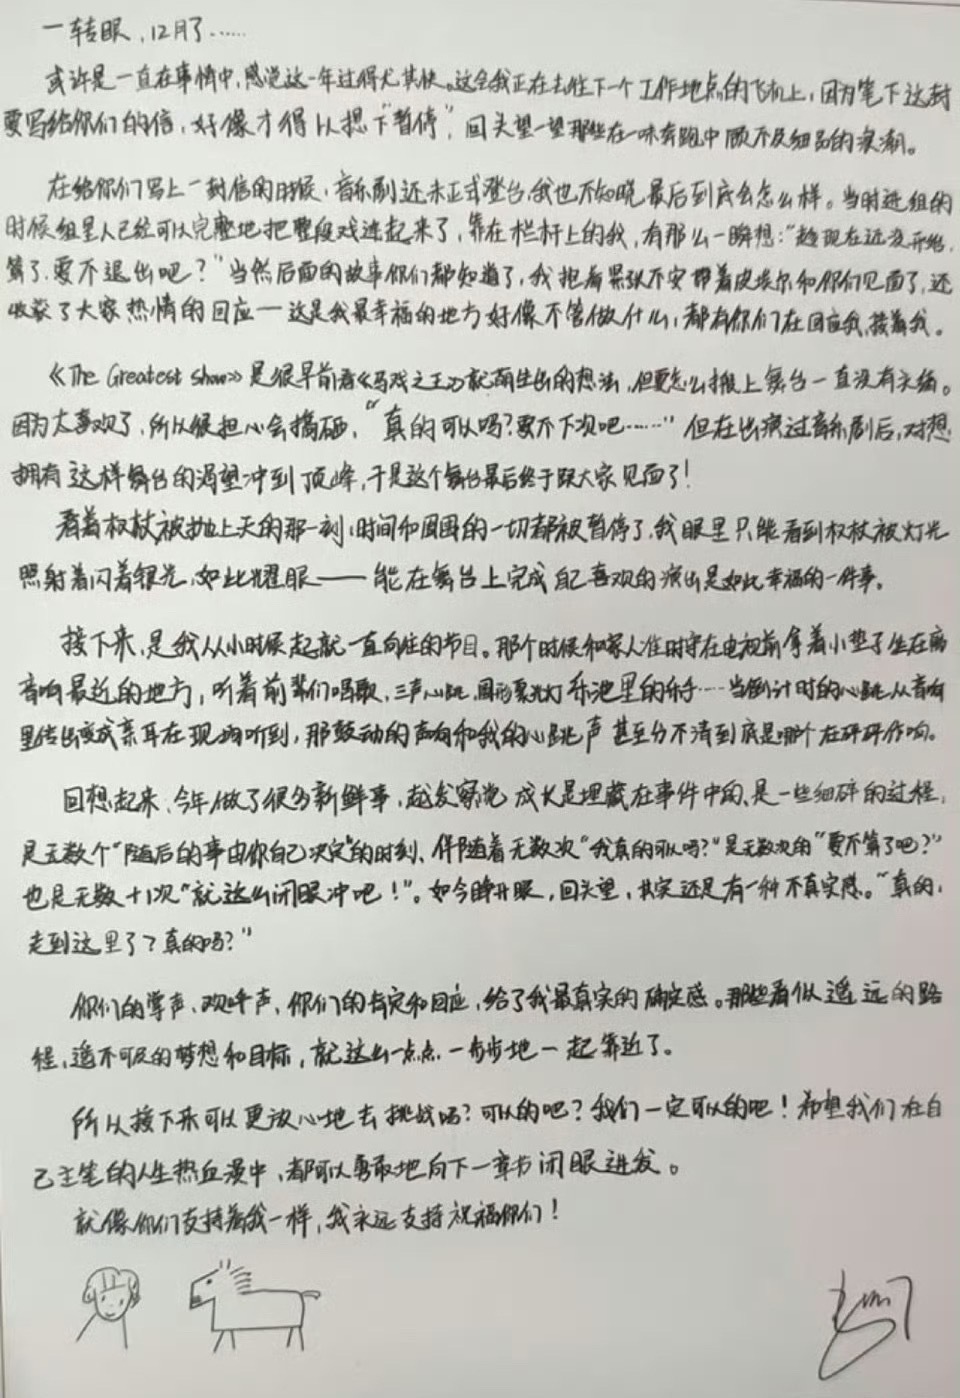 一转眼，12月了……
或许是一直在事情中，感觉这一年过得尤其快。这会我正在去往下一个工作地点的飞机上，因为笔下这封
要写给你们的信，好像才得以摁下“暂停”，回头望一望那些在一味奔跑中顾不及细品的浪潮。
在给你们写上一封信的时候，音乐剧还未正式登台，我也不知晓最后到底会怎么样。当时进组的
时候组里人已经可以完整地把整段戏连起来了，靠在栏杆上的我，有那么一瞬想：“趁现在还没开始，
算了，要不退出吧？”当然后面的故事你们都知道了，我抱着紧张不安带着皮埃尔和你们见面了，还
收获了大家热情的回应——这是我最幸福的地方好像不管做什么，都有你们在回应我，接着我。
《The Greatest Show》是很早前看《马戏之王》就萌生出的想法，但要怎么搬上舞台一直没有头绪。
因为太喜欢了，所以很担心会搞砸，“真的可以吗？要不下次吧……”但在出演过音乐剧后，对想
拥有这样舞台的渴望冲到顶峰，于是这个舞台最后终于跟大家见面了！
看着权杖被抛上天的那一刻，时间和周围的一切都被暂停了，我眼里只能看到权杖被灯光
照射着闪着银光，如此耀眼——能在舞台上完成自己喜欢的演出是如此幸福的一件事。
接下来，是我从小时候起就一直向往的节目。那个时候和家人准时守在电视前拿着小垫子坐在离
音响最近的地方，听着前辈们唱歌，三声心跳，圆形聚光灯乐池里的乐手……当倒计时的心跳从音响
里传出变成亲耳在现场听到，那鼓动的声响和我的心跳声甚至分不清到底是哪个在砰砰作响。
回想起来，今年做了很多新鲜事，越发察觉成长是埋藏在事件中的，是一些细碎的过程，
是无数个“随后的事由你自己决定”的时刻、伴随着无数次“我真的可以吗？”是无数次的“要不算了吧？”
也是无数+1次“就这么闭眼冲吧！”。如今睁开眼，回头望，其实还是有一种不真实感。“真的，
走到这里了？真的吗？”
你们的掌声、欢呼声，你们的肯定和回应，给了我最真实的确定感。那些看似遥远的路
程，遥不可及的梦想和目标，就这么一点点一步步地一起靠近了。
所以接下来可以更放心地去挑战吗？可以的吧？我们一定可以的吧！希望我们在自
己主笔的人生热血漫中，都可以勇敢地向下一章节闭眼进发。
就像你们支持着我一样，我永远支持祝福你们！